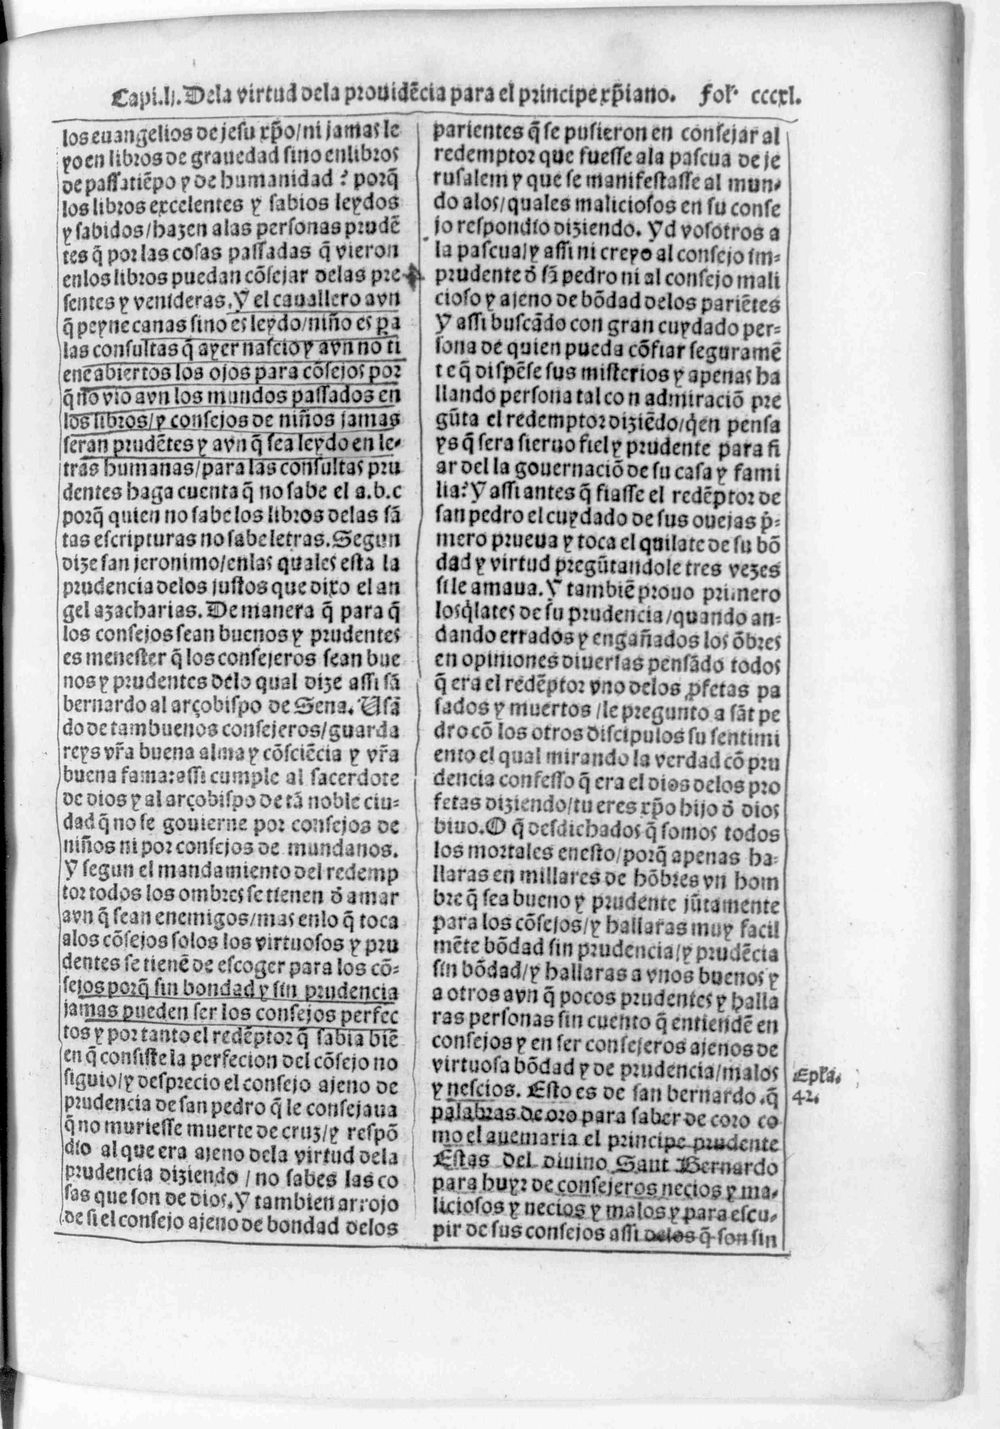 Capi.lj. Dela virtud dela prouidẽcia para el principe xp̃iano. Fol. cccxl.
los euangelios de jesu xp̃o/ni jamas le
yo en libros de grauedad sino en libros
de passatiẽpo y de humanidad? porq̃
los libros excelentes y sabios leydos
y sabidos/hazen alas personas prudẽ
tes q̃ por las cosas passadas q̃ vieron
enlos libros puedan cõsejar delas pre
sentes y venideras. Y el cauallero avn
q̃ peyne canas sino es leydo/niño es pa
las consultas q̃ ayer nascio y avn no ti
ene abiertos los ojos para cõsejos por
q̃ no vio avn los mundos passados en
los libros/y consejos de niños jamas
seran prudẽtes y avn q̃ sea leydo en le-
tras humanas/para las consultas pru
dentes haga cuenta q̃ no sabe el a.b.c
porq̃ quien no sabe los libros delas sã
tas escripturas no sabe letras. Segun
dize san jeronimo/enlas quales esta la
prudencia delos justos que dixo el an
gel azacharias. De manera q̃ para q̃
los consejos sean buenos y prudentes
es menester q̃ los consejeros sean bue
nos y prudentes delo qual dize assi sã
bernardo al arçobispo de Sena. Usã
do de tam buenos consejeros/guarda
reys vr̃a buena alma y cõsciẽcia y vr̃a
buena fama: assi cumple al sacerdote
de dios y al arçobispo de tã noble ciu-
dad q̃ no se gouierne por consejos de
niños ni por consejos de mundanos.
Y segun el mandamiento del redemp
tor todos los ombres se tienen õ amar
avn q̃ sean enemigos/mas enlo q̃ toca
alos cõsejos solos los virtuosos y pru
dentes se tienẽ de escoger para los cõ-
sejos porq̃ sin bondad y sin prudencia
jamas pueden ser los consejos perfec
tos y por tanto el redẽptor q̃ sabia biẽ
en q̃ consiste la perfecion del cõsejo no
siguio/y desprecio el consejo ajeno de
prudencia de san pedro q̃ le consejaua
q̃ no muriesse muerte de cruz/y respõ
dio al que era ajeno dela virtud dela
prudencia diziendo/no sabes las co
sas que son de dios. Y tambien arrojo
de si el consejo ajeno de bondad delos
parientes q̃ se pusieron en consejar al
redemptor que fuesse ala pascua de je
rusalem y que se manifestasse al mun-
do alos/quales maliciosos en su conse
jo respondio diziendo. Yd vosotros a
la pascua/y assi ni creyo al consejo im-
prudente õ sã pedro ni al consejo mali
cioso y ajeno de bõdad delos pariẽtes
Y assi buscãdo con gran cuydado per-
sona de quien pueda cõfiar seguramẽ
te q̃ dispẽse sus misterios y apenas ha
llando persona tal con admiraciõ pre
gũta el redemptor diziẽdo/q̃en pensa
ys q̃ sera sieruo fiel y prudente para fi
ar del la gouernaciõ de su casa y fami
lia? Y assi antes q̃ fiasse el redẽptor de
san pedro el cuydado de sus ouejas p̃-
mero prueua y toca el quilate de su bõ
dad y virtud pregũtandole tres vezes
si le amaua. Y tambiẽ prouo primero
los q̃lates de su prudencia/quando an-
dando errados y engañados los õbres
en opiniones diuersas pensãdo todos
q̃ era el redẽptor vno delos ꝓfetas pa
sados y muertos/le pregunto a sãt pe
dro cõ los otros discipulos su sentimi
ento el qual mirando la verdad cõ pru
dencia confesso q̃ era el dios delos pro
fetas diziendo/tu eres xp̃o hijo õ dios
biuo. O q̃ desdichados q̃ somos todos
los mortales enesto/porq̃ apenas ha-
llaras en millares de hõbres vn hom
bre q̃ sea bueno y prudente jũtamente
para los cõsejos/y hallaras muy facil
mẽte bõdad sin prudencia/y prudẽcia
sin bõdad/y hallaras a vnos buenos y
a otros avn q̃ pocos prudentes y halla
ras personas sin cuento q̃ entiendẽ en
consejos y en ser consejeros ajenos de
virtuosa bõdad y de prudencia/malos
y nescios. Esto es de san bernardo. q̃
palabras de oro para saber de coro co
mo el auemaria el principe prudente
Estas del diuino Sant Bernardo
para huyr de consejeros necios y ma-
liciosos y necios y malos y para escu-
pir de sus consejos assi delos q̃ son sin
Epl̃a.
42.